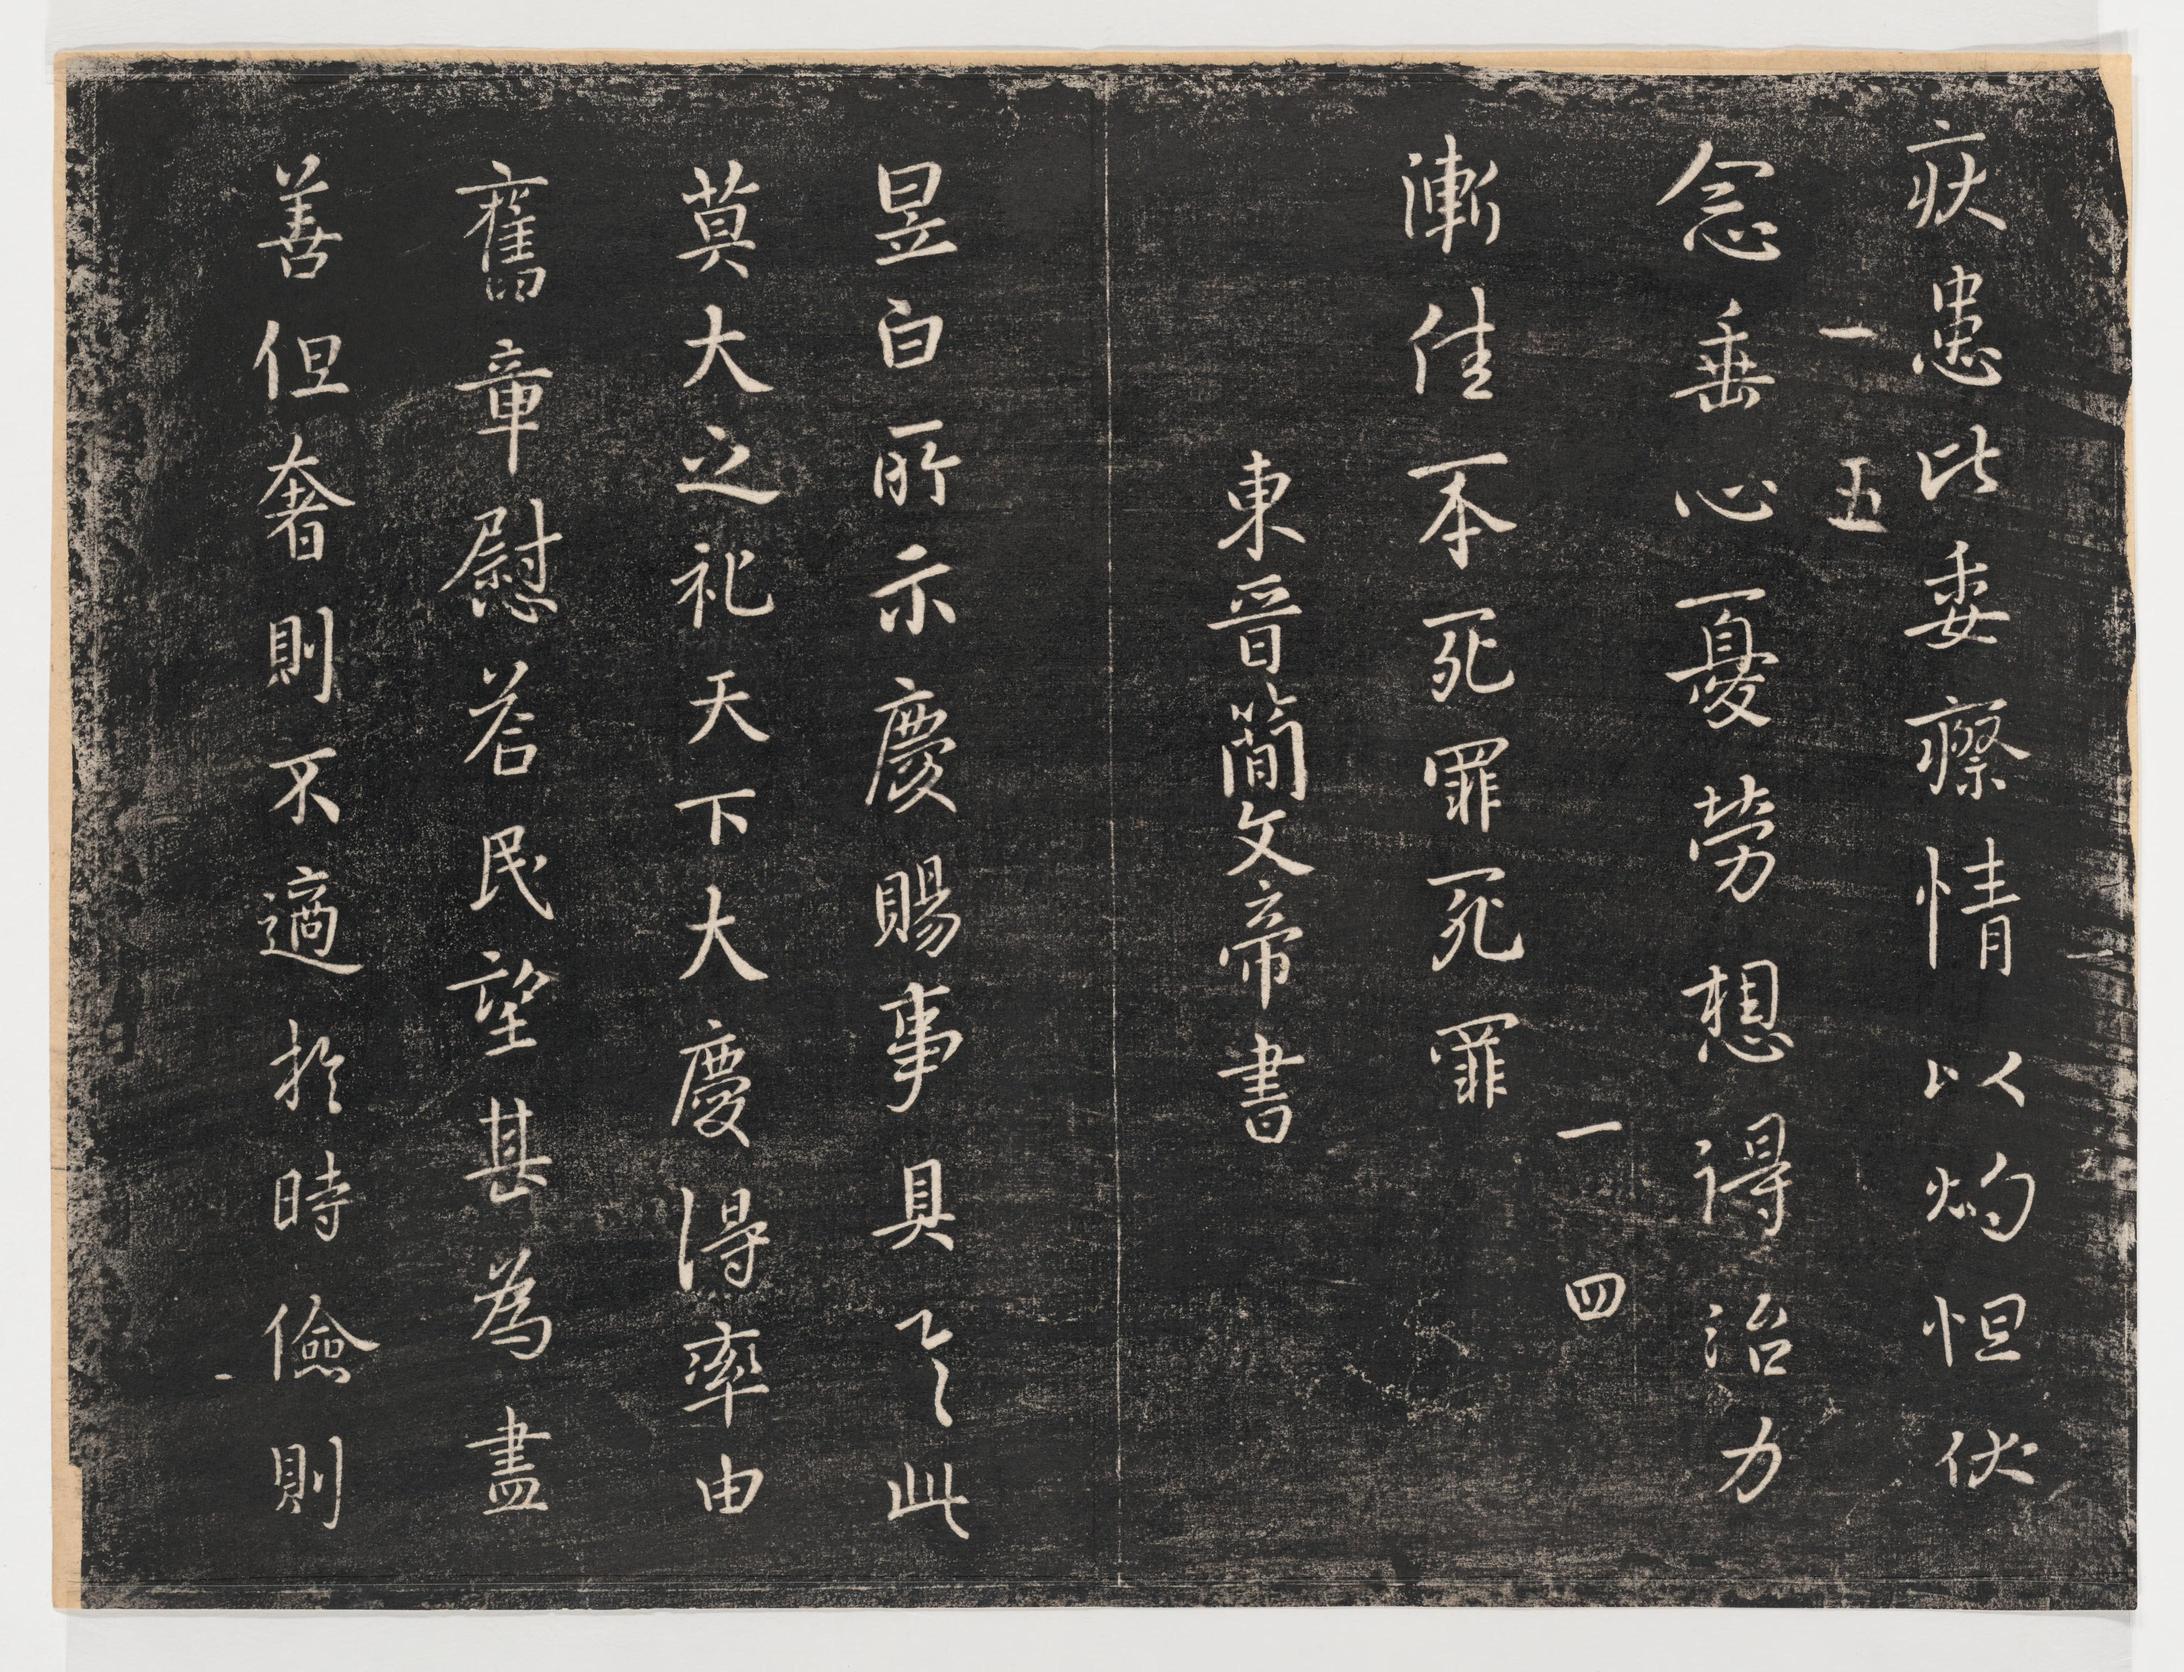 疾患比委瘵情以灼怛伏
一五
念垂心憂勞想得治力
一四
漸佳不死罪死罪
東晉簡文帝書
昱白所示慶賜事具之此
莫大之礼天下大慶得率由
舊章慰荅民望甚為盡
善但奢則不適於時儉則